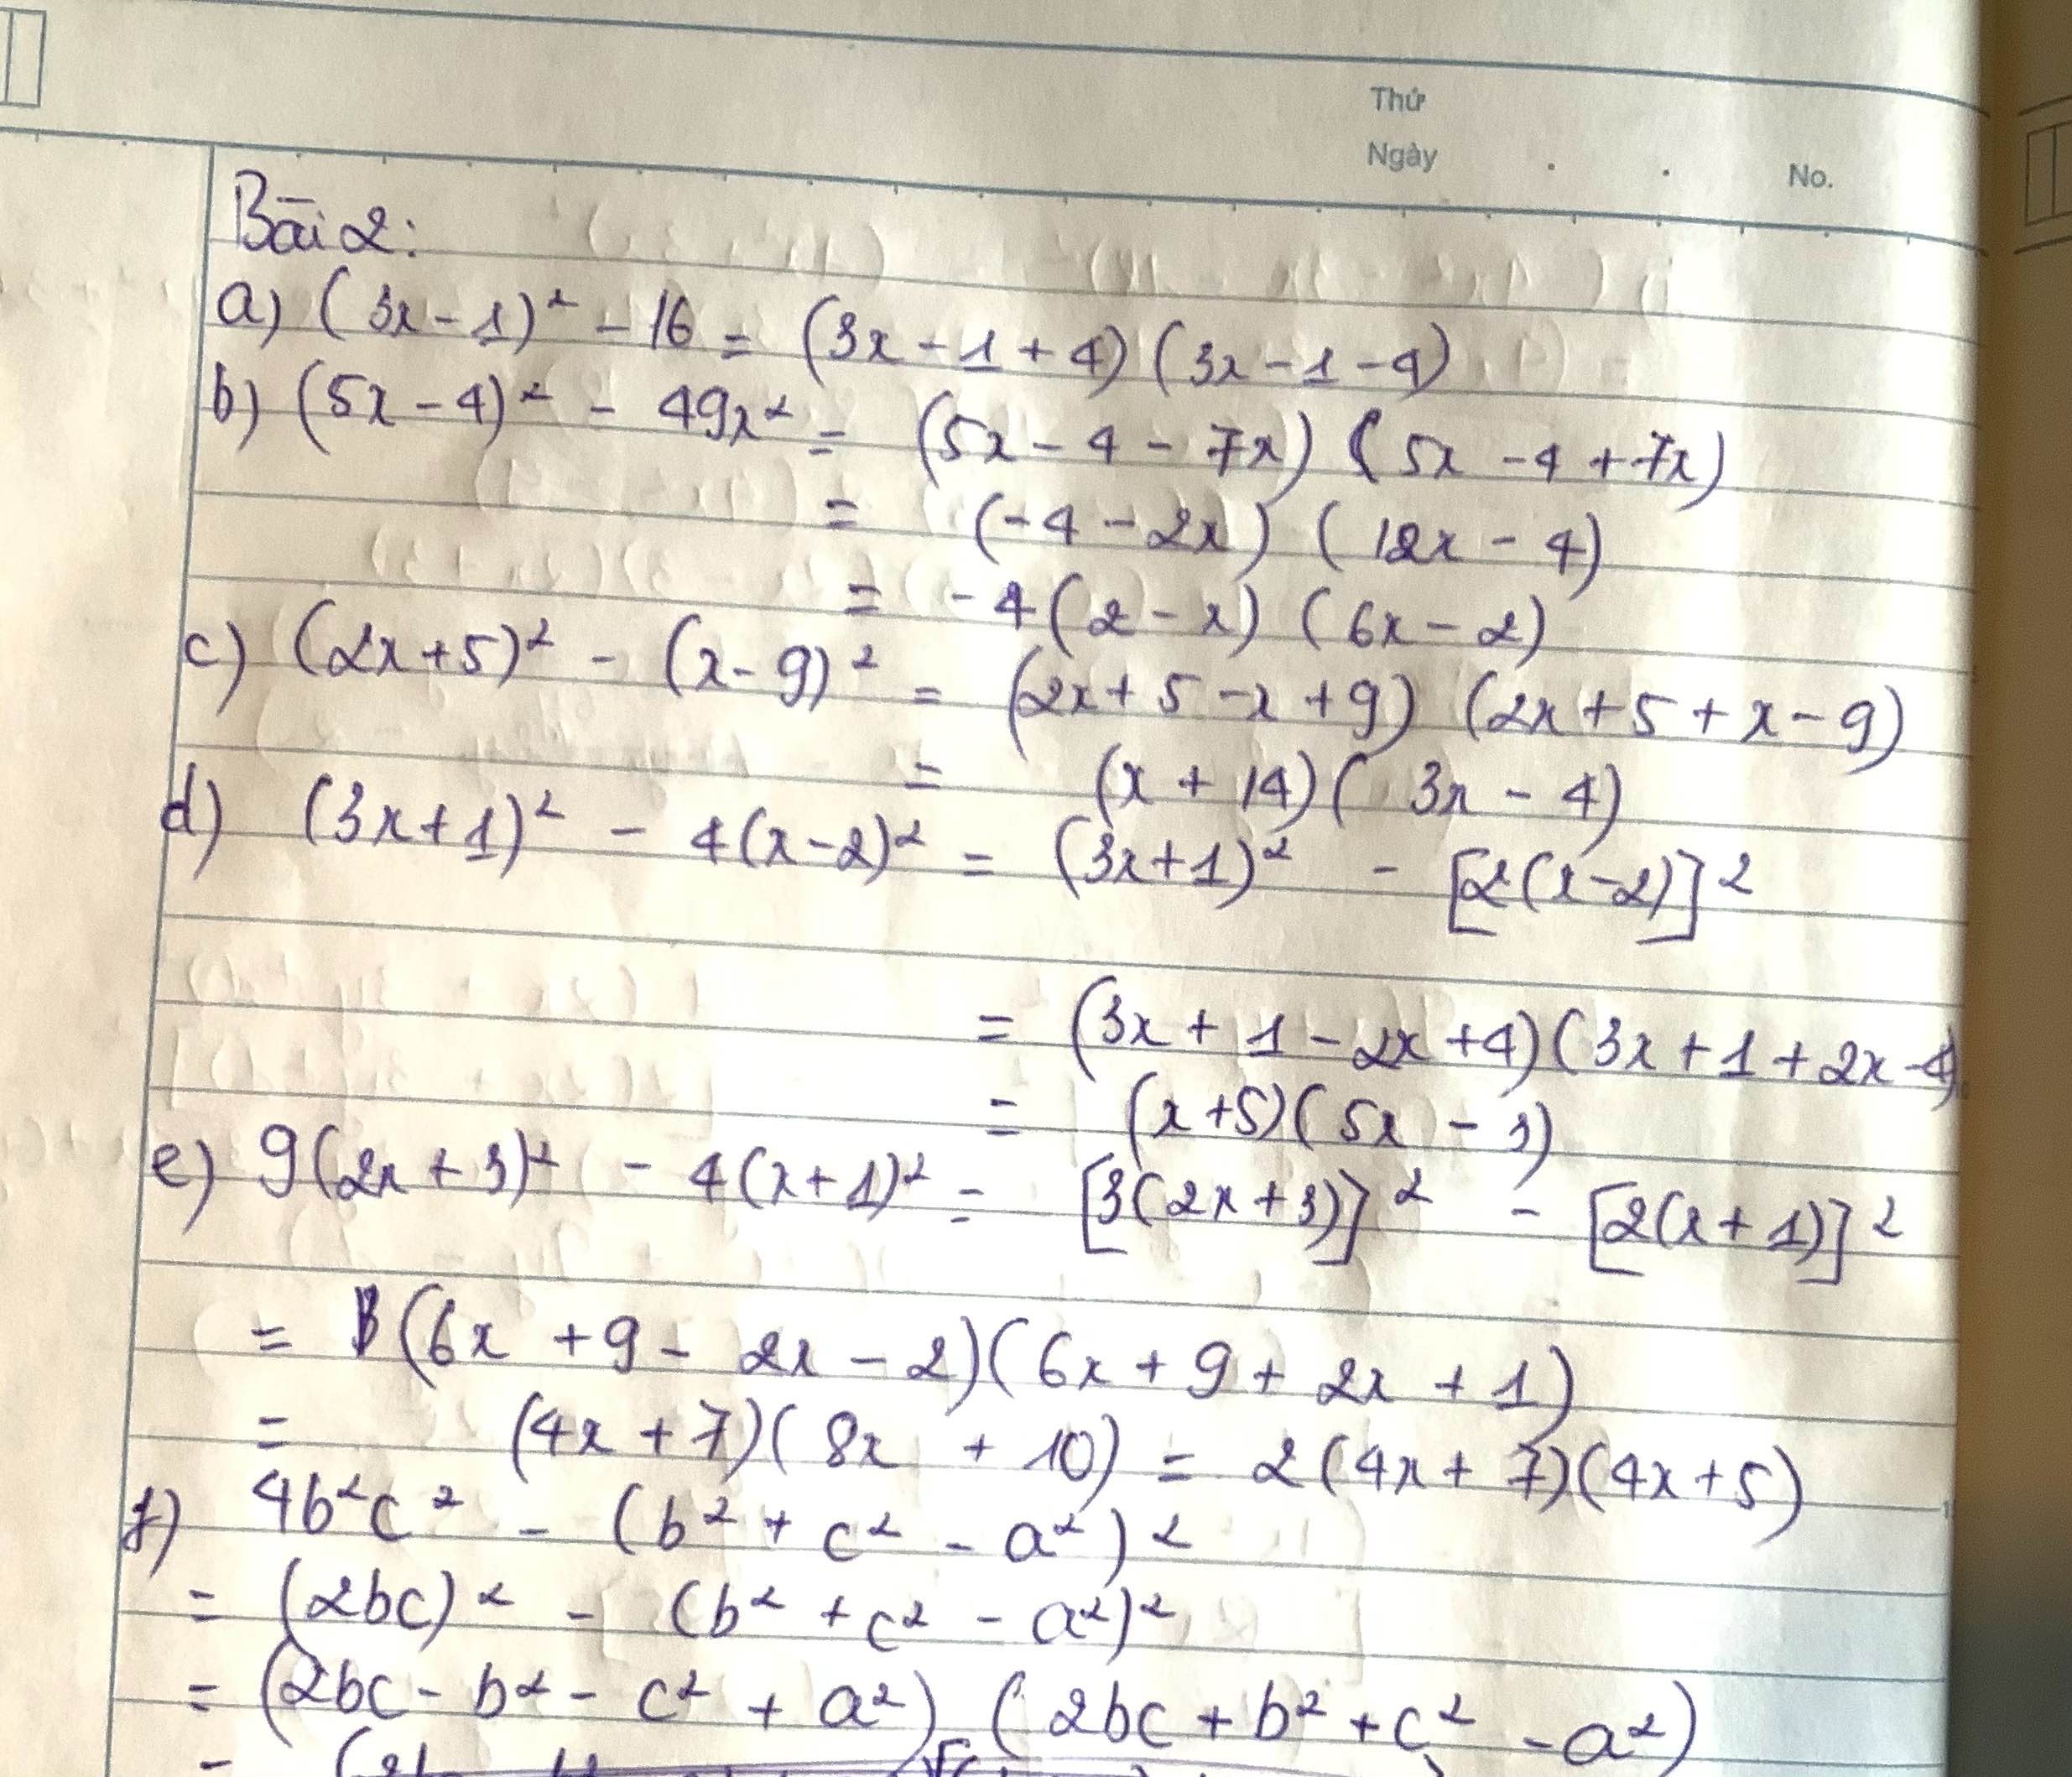 Thứ
Ngày
No.
Bài 2:
a) (3x-1)² - 16 = (3x - 1 + 4) (3x - 1 - 4)
b) (5x - 4)² - 49x² = (5x - 4 - 7x) (5x - 4 + 7x)
= (-4 - 2x) (12x - 4)
= -4(2 - x) (6x - 2)
c) (2x+5)² - (x-9)² = (2x+5-x+9) (2x+5+x-9)
= (x + 14)(3x - 4)
d) (3x+1)² - 4(x-2)² = (3x+1)² - [2(x-2)]²
= (3x + 1 - 2x + 4)(3x + 1 + 2x - 4)
= (x+5)(5x - 3)
e) 9(2x+3)² - 4(x+1)² = [3(2x+3)]² - [2(x+1)]²
= (6x + 9 - 2x - 2)(6x + 9 + 2x + 1)
= (4x + 7)(8x + 10) = 2(4x + 7)(4x + 5)
f) 4b²c² - (b² + c² - a²)²
= (2bc)² - (b² + c² - a²)²
= (2bc - b² - c² + a²) (2bc + b² + c² - a²)